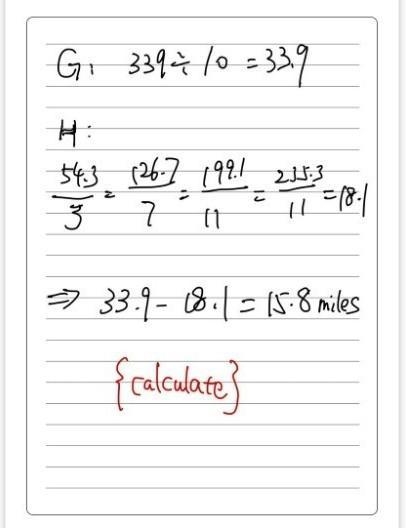 G: 339 ÷ 10 = 33.9
H:
54.3/3 = 126.7/7 = 199.1/11 = 235.3/11 = 18.1
⇒ 33.9 - 18.1 = 15.8 miles
{calculate}